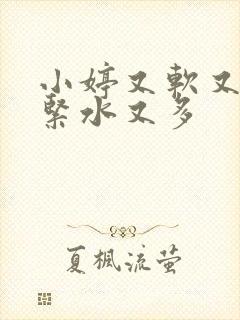 小婷又軟又
緊水又多
夏楓流萤